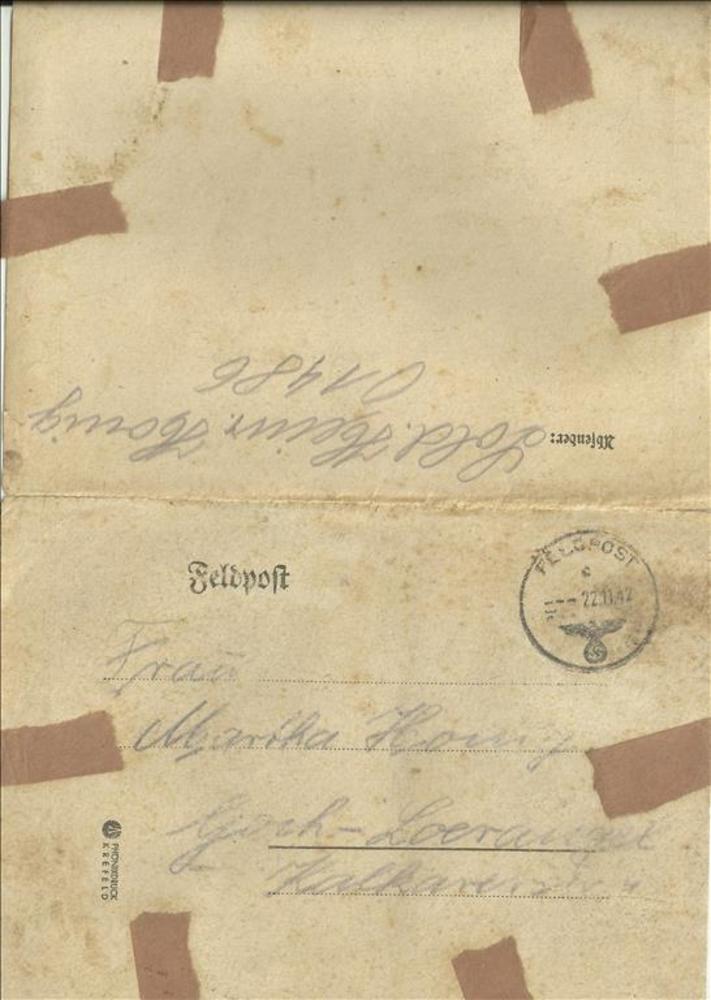 Absender: Sold. Heinr. Honig
01486
Feldpost
FELDPOST
c
22.11.42
Frau
Martha Honig
Goch-
PHÖNIXDRUCK
KREFELD